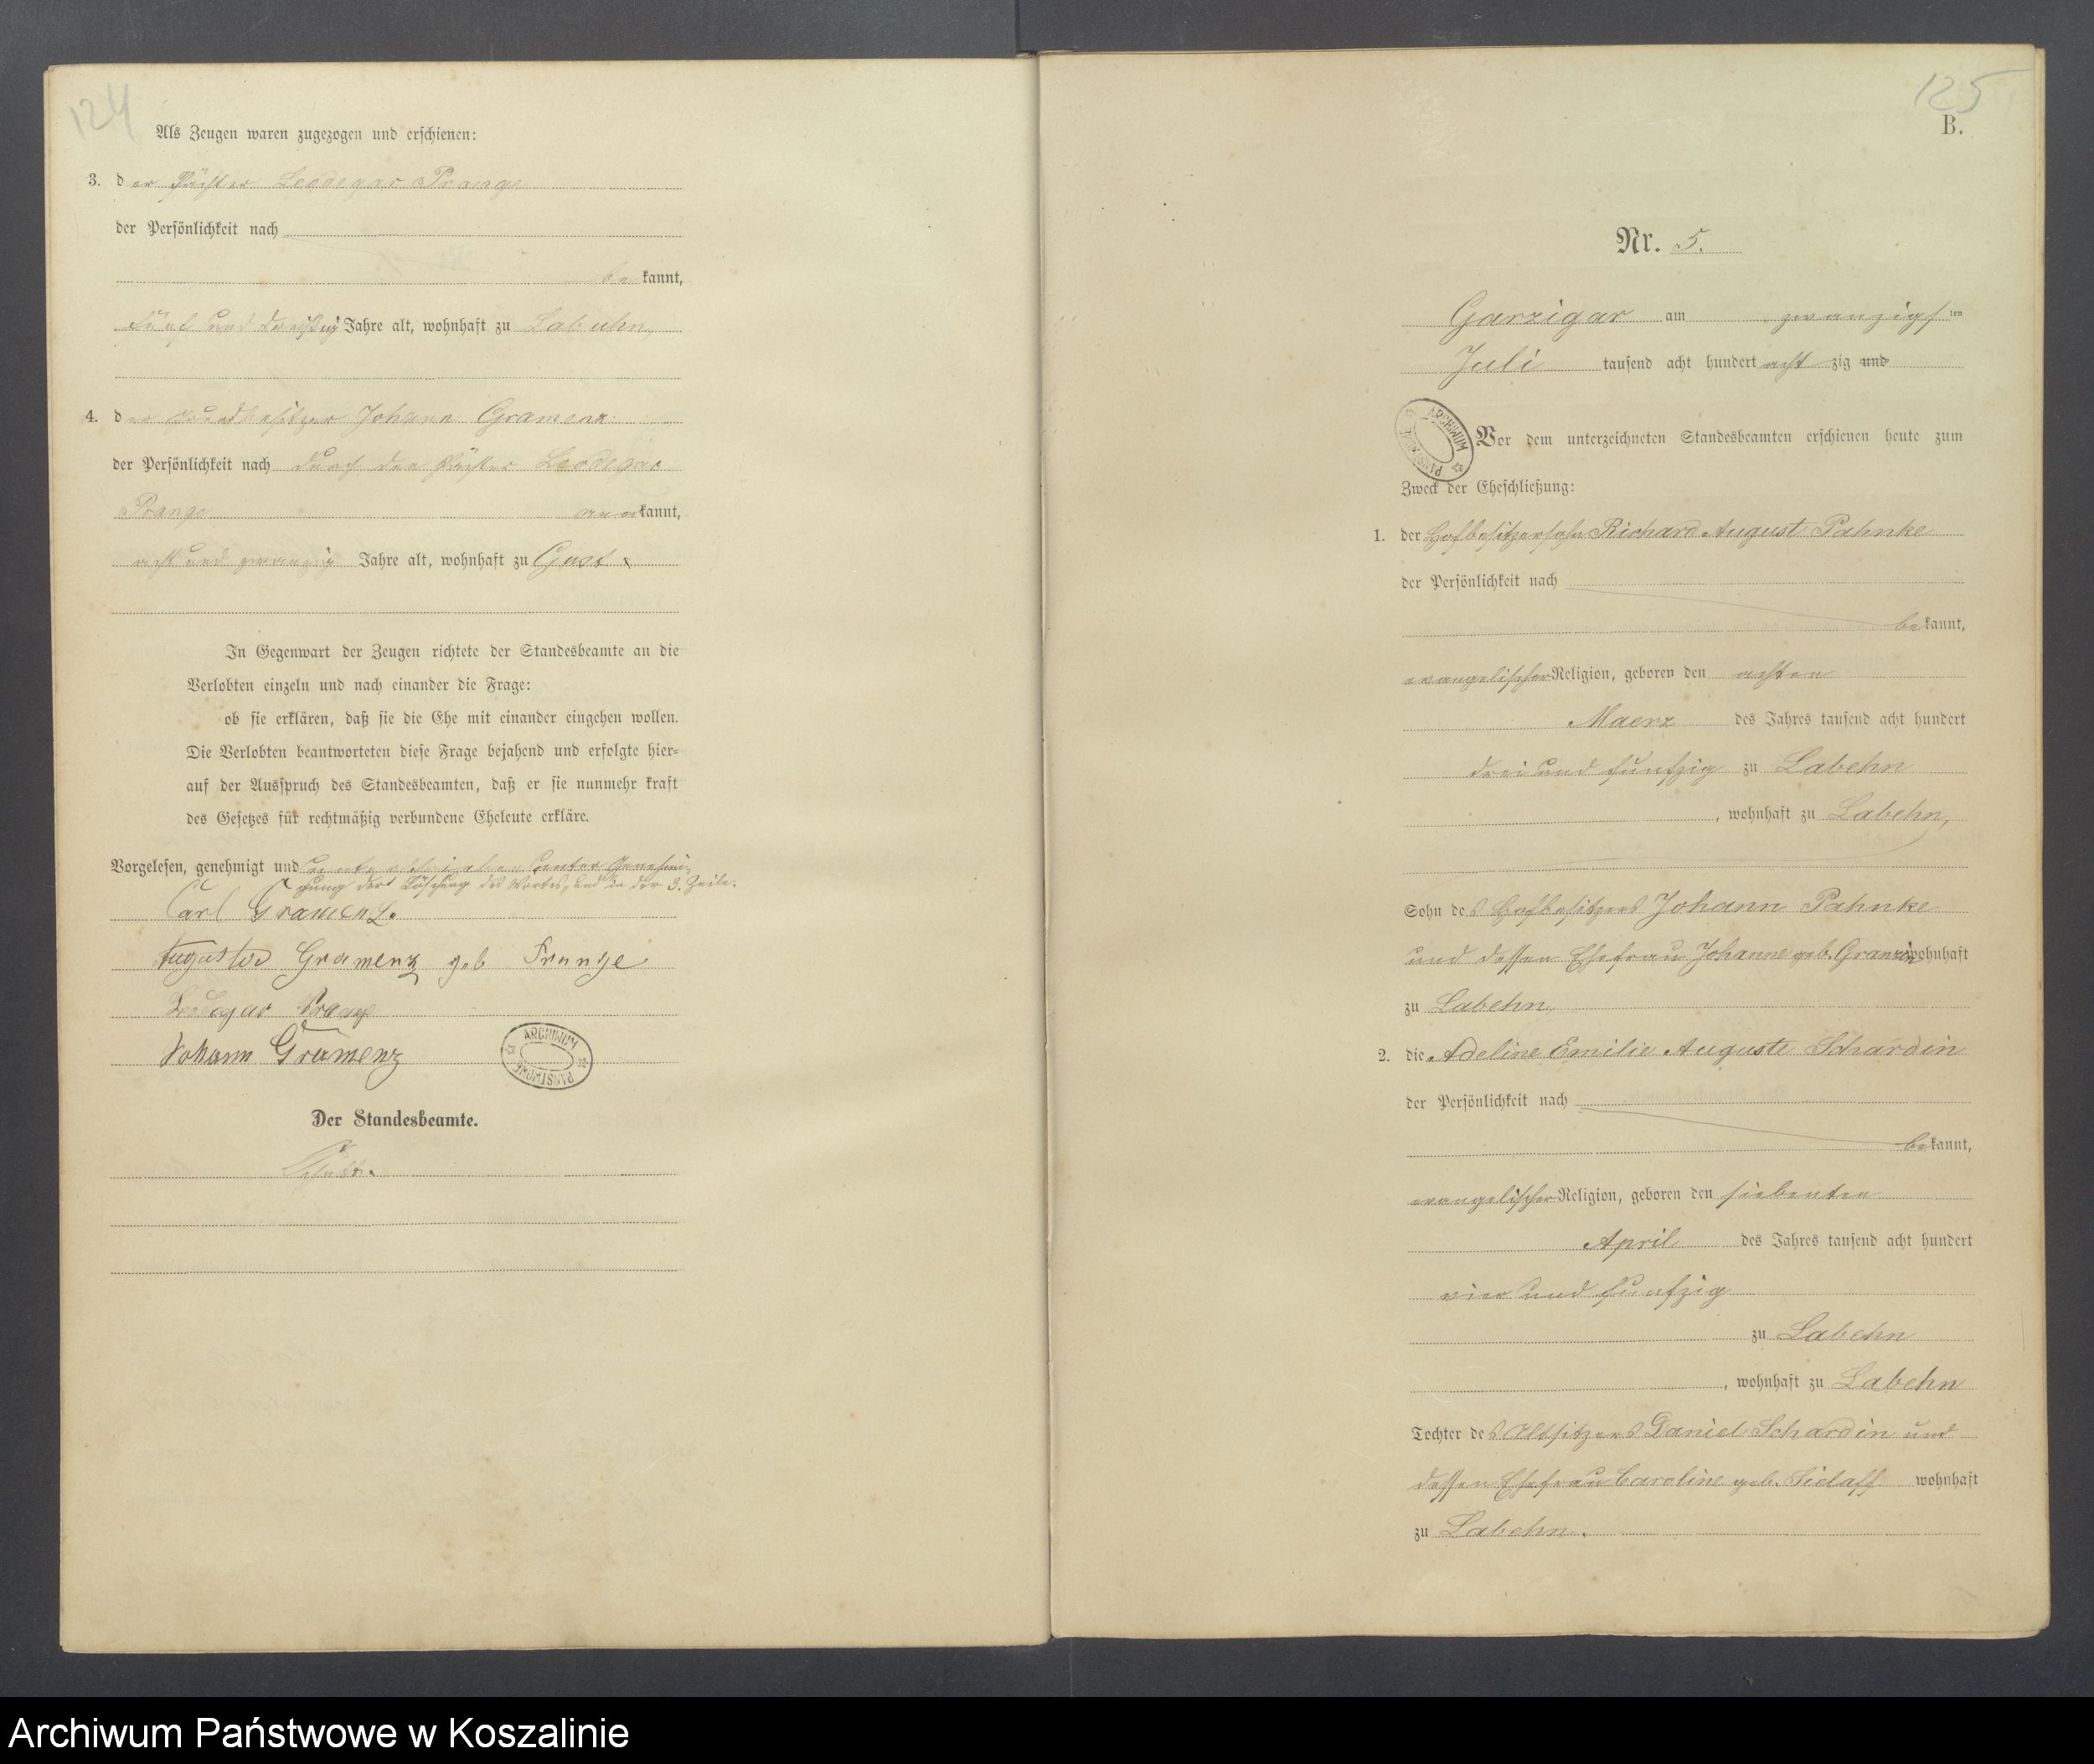 124
Als Zeugen waren zugezogen und erschienen:
3. der Pächter Leodegar Prange
der Persönlichkeit nach
bekannt,
fünf und dreißig Jahre alt, wohnhaft zu Labuhn,
4. der Hofbesitzer Johann Gramenz
der Persönlichkeit nach durch den Pächter Leodegar
Prange anerkannt,
acht und zwanzig Jahre alt, wohnhaft zu
In Gegenwart der Zeugen richtete der Standesbeamte an die
Verlobten einzeln und nach einander die Frage:
ob sie erklären, daß sie die Ehe mit einander eingehen wollen.
Die Verlobten beantworteten diese Frage bejahend und erfolgte hier-
auf der Ausspruch des Standesbeamten, daß er sie nunmehr kraft
des Gesetzes für rechtmäßig verbundene Eheleute erkläre.
Vorgelesen, genehmigt und unterschrieben unter Genehmi-
gung der Löschung des Wortes „und“ in der 3. Zeile.
Carl Gramenz.
Auguste Gramenz geb Prange
Leodegar Prange
Johann Gramenz
ARCHIWUM PAŃSTWOWE
Der Standesbeamte.
125
B.
Nr. 5.
Garzigar am zwanzigsten
Juli tausend acht hundert achtzig und
ARCHIWUM PAŃSTWOWE
Vor dem unterzeichneten Standesbeamten erschienen heute zum
Zweck der Eheschließung:
1. der Hofbesitzersohn Richard August Pahnke
der Persönlichkeit nach
bekannt,
evangelischer Religion, geboren den achten
Maerz des Jahres tausend acht hundert
drei und funfzig zu Labehn
, wohnhaft zu Labehn,
Sohn des Hofbesitzers Johann Pahnke
und dessen Ehefrau Johanne geb. Granzin wohnhaft
zu Labehn
2. die Adeline Emilie Auguste Schardin
der Persönlichkeit nach
bekannt,
evangelischer Religion, geboren den siebenten
April des Jahres tausend acht hundert
vier und funfzig
zu Labehn
, wohnhaft zu Labehn
Tochter des Altsitzers Daniel Schardin und
dessen Ehefrau Caroline geb. Sielaff wohnhaft
zu Labehn.
Archiwum Państwowe w Koszalinie